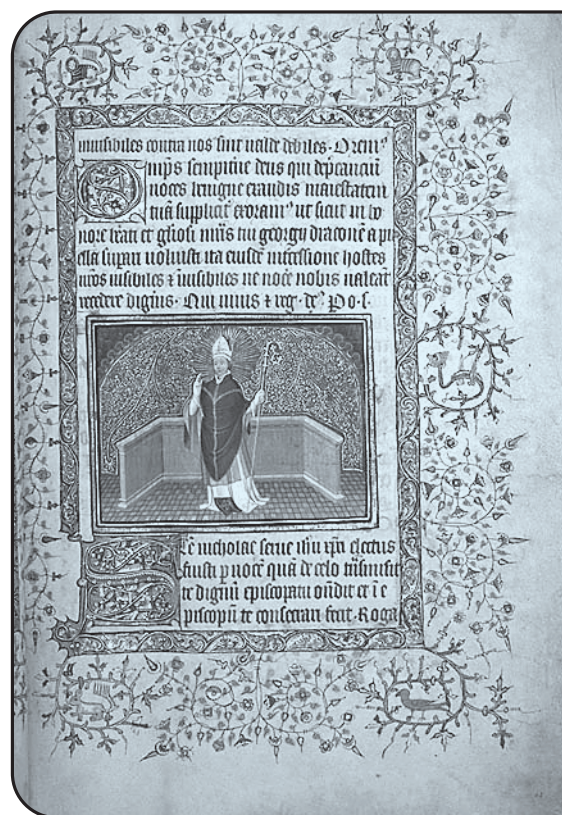 inuisibiles contra nos sint ualde debiles · Orem᷒
Omps sempiterne deus qui depcanciū
uoces benigne exaudis maiestatem
tuā supplicit exoram᷒ ut sicut in ho
nore beati et gliosi mris tui georgij draconē a pu
ella supari uoluisti ita eiusdē intercessione hostes
nros uisibiles ⁊ inuisibiles ne nocē nobis ualeāt
cedere digneris · Qui uiuis ⁊ reg · de᷒
Sce nicholae serue ihu xpi electus
fuisti p uocē quā de celo trāsmisit
te dignū episcopatu oñdit et ī e
piscopū te consecrari fecit · Roga